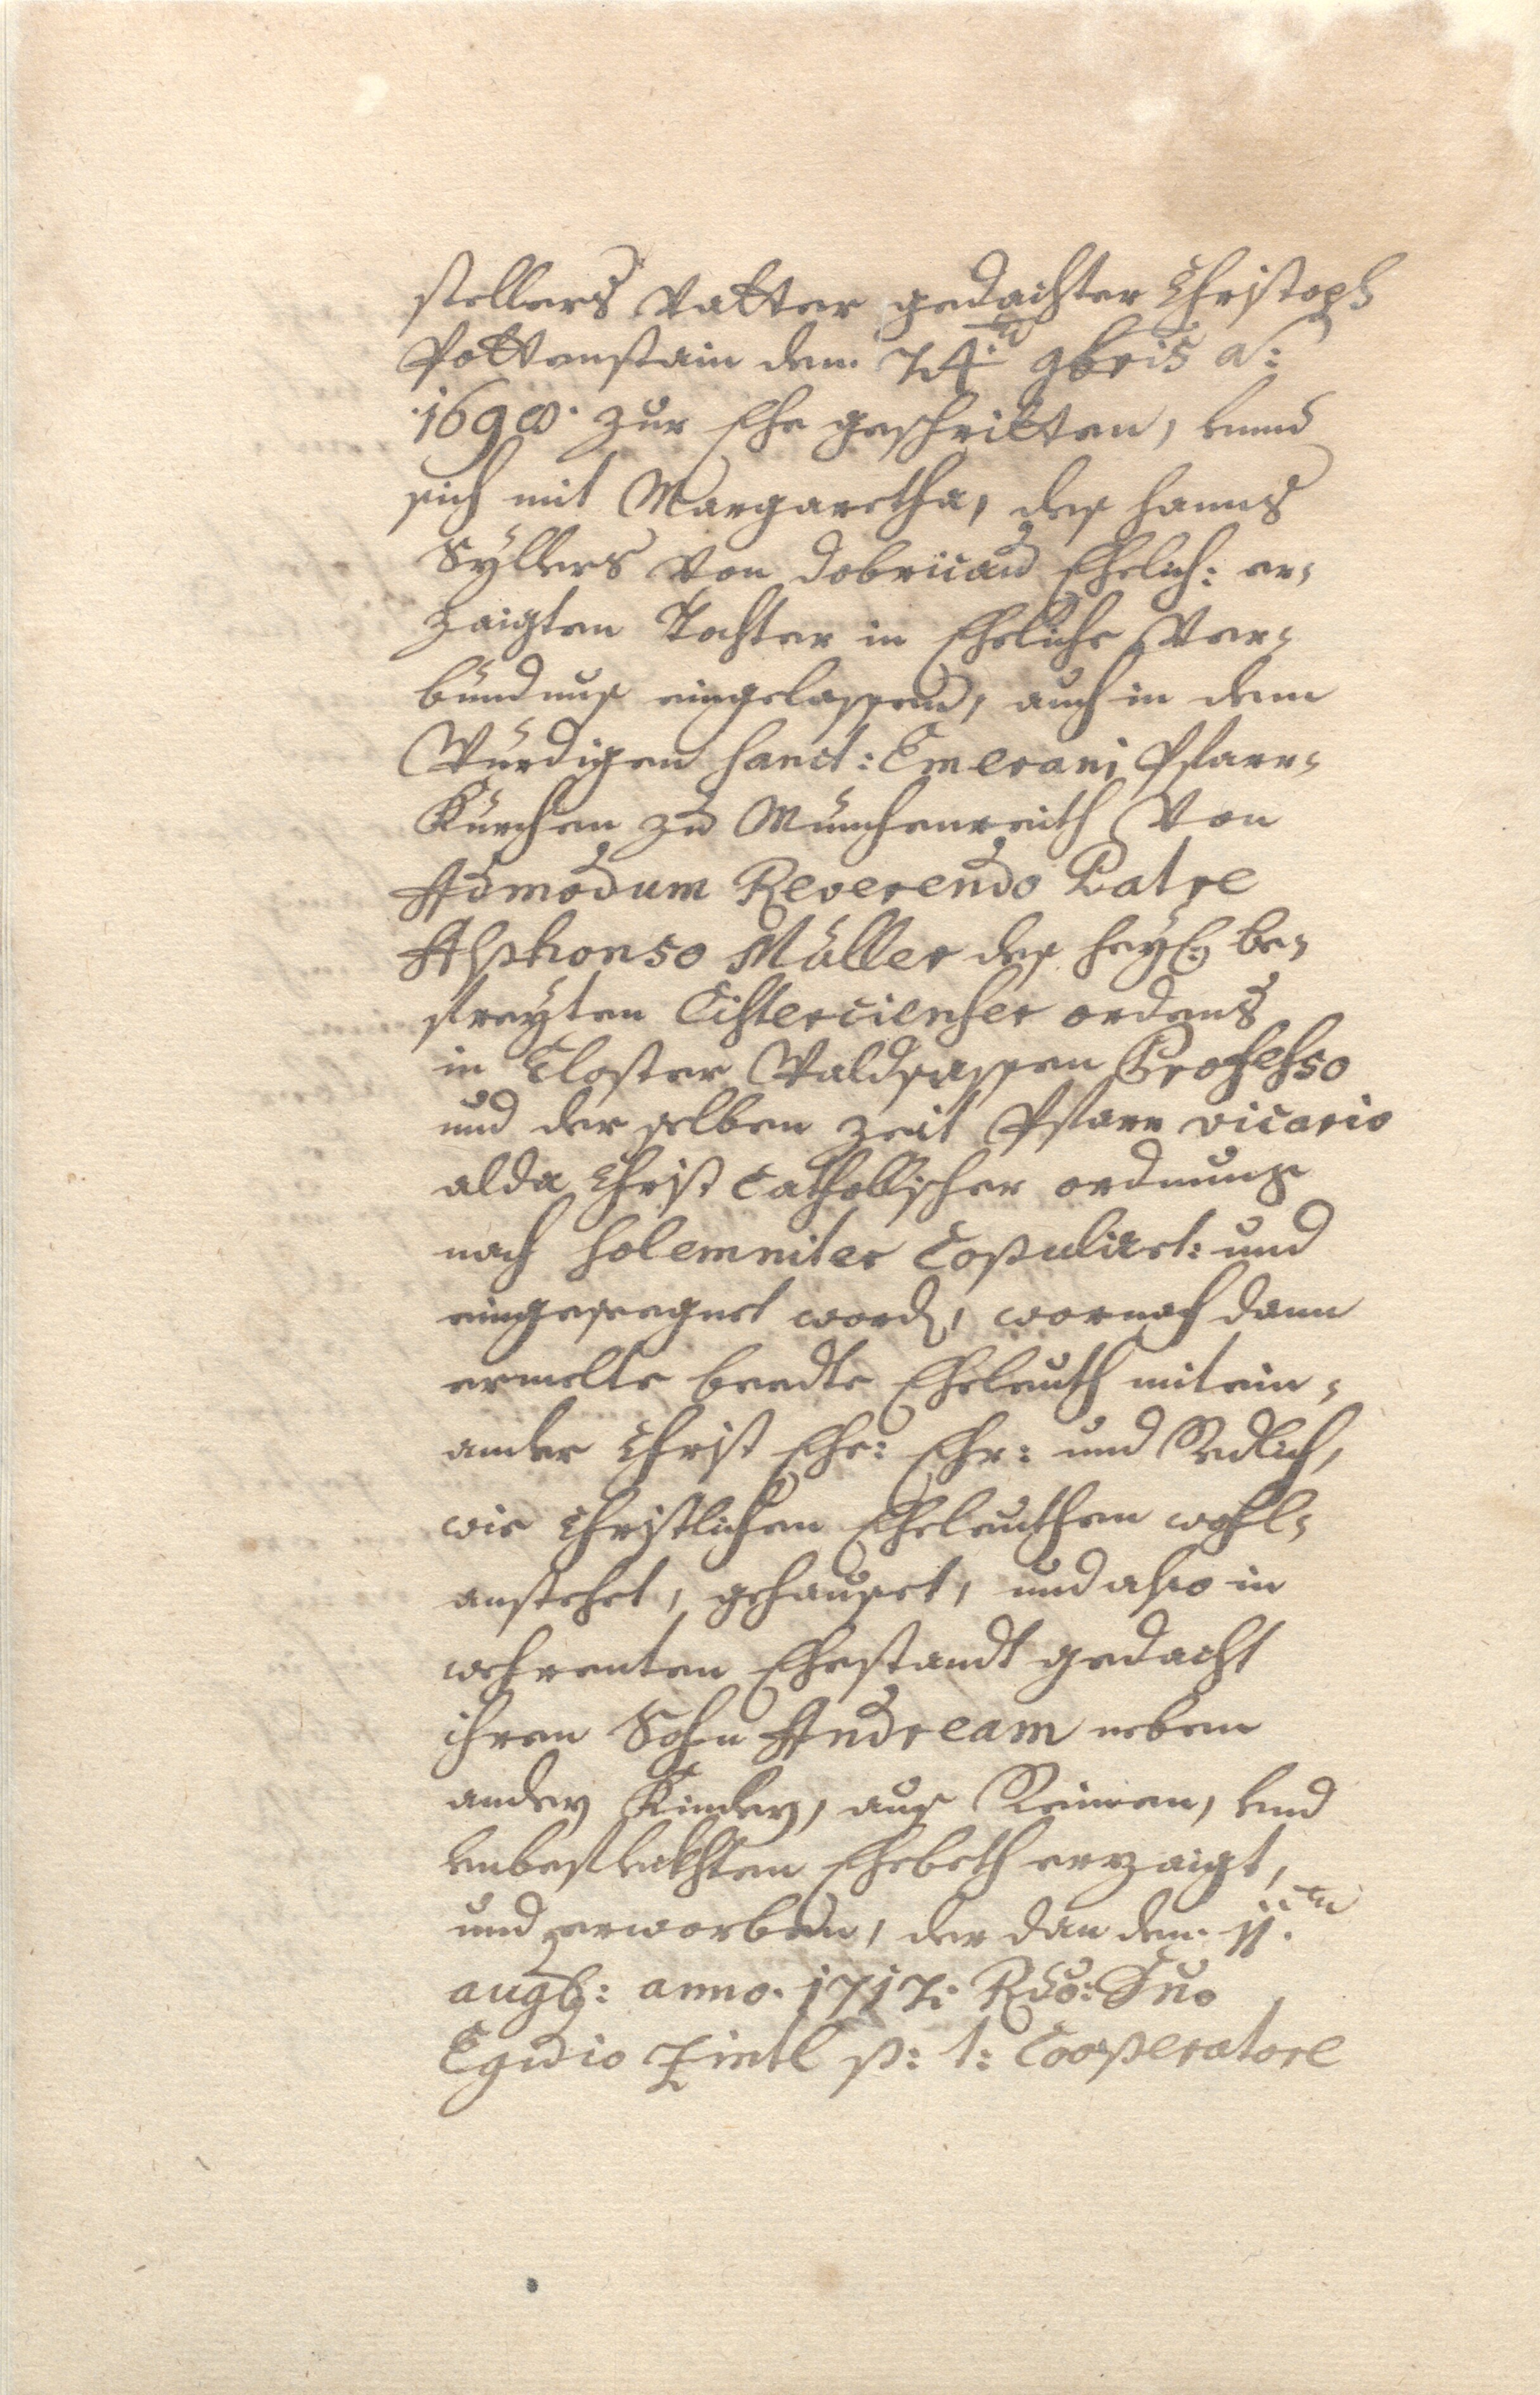 stellers Vatter gedachter Christoph
Pottenstain den 24.ten 9bris a:
1698. zur Ehe geschritten, vnnd
sich mit Margaretha, des Hanns
Syllers von Dobrúau Ehelich: er-
zaigten Tochter in Eheliche Ver-
bündnus eingelassen, auch in dem
Würdigen Sanct: Emerani Pfarr-
Kürchen zu Münchenreith von
Admodum Reverendo Patre
Alphonso Müller des heyl: be-
freyten Cistercienser ordens
in Closter Waldsassen Professo
und der selben zeit Pfarr vicario
alda Christ Catholischer ordnung
nach solemniter Copuliert: und
eingesegnet word, wornach dann
ermelte beedte Eheleuth mitein-
ander Christ Ehe: Ehr: und Redlich,
wie Christlichen Eheleuthen wohl-
anstehet, gehauset, und also in
wehrenten Ehestandt gedacht
ihren Sohn Andream neben
andern Kindern, aus Reinen, vnd
vnbeflekhten Ehebeth erzaigt,
und erworben, der dan den 11.ten
aug: anno. 1717: Rdo: Dno
Egidio Zintl p: t: Cooperatore